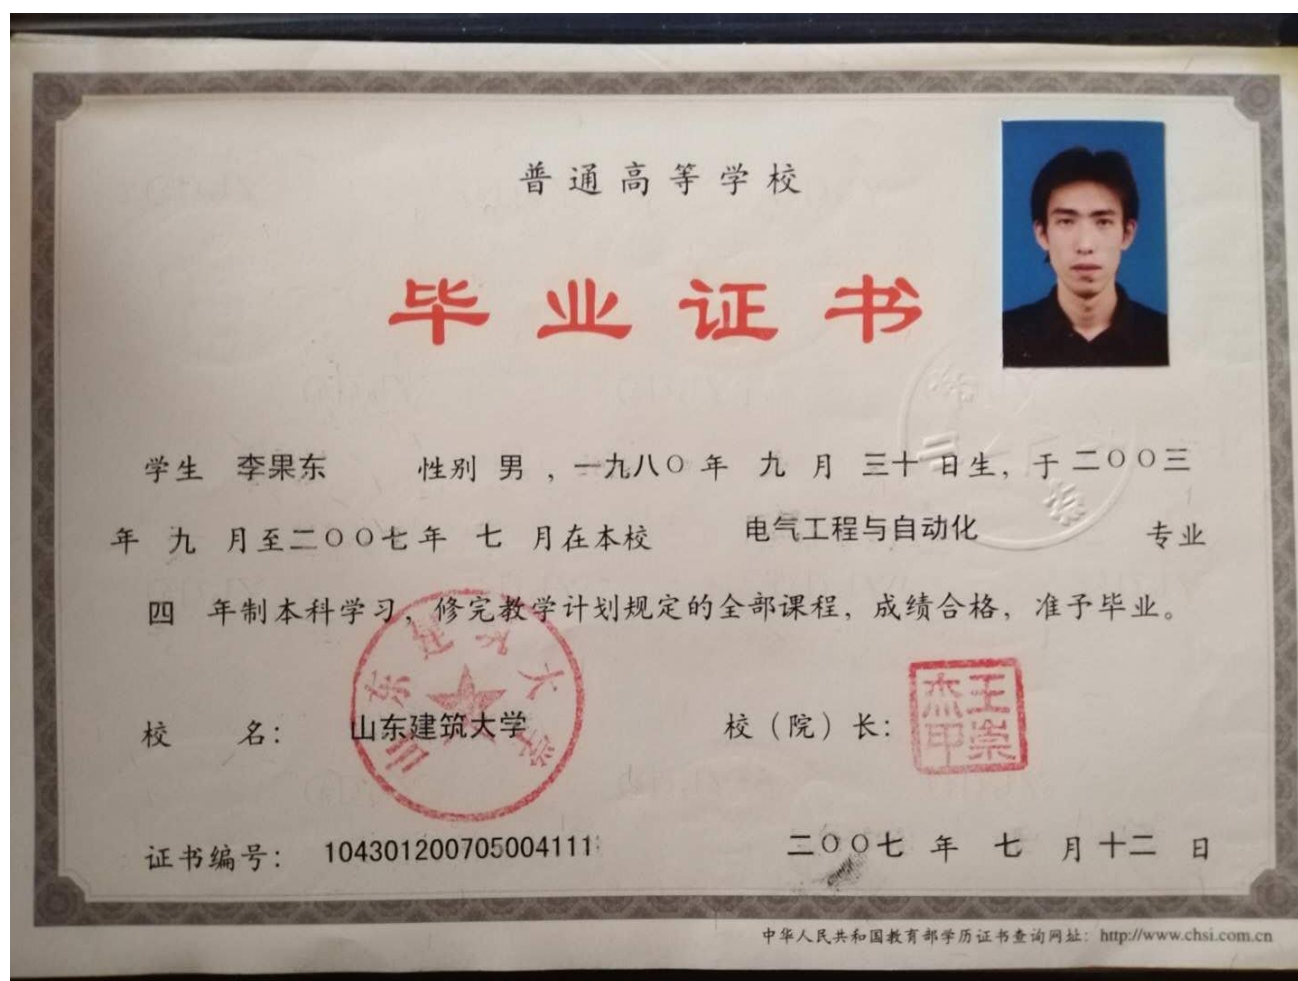 普通高等学校
毕业证书
学生 李果东 性别 男 ,一九八〇年 九 月 三十 日生, 于 二〇〇三
年 九 月至二〇〇七年 七 月在本校 电气工程与自动化 专业
四 年制本科学习, 修完教学计划规定的全部课程, 成绩合格, 准予毕业。
山东建筑大学
校 名: 山东建筑大学 校（院）长: 王崇杰印
证书编号: 104301200705004111 二〇〇七 年 七 月 十二 日
中华人民共和国教育部学历证书查询网址: http://www.chsi.com.cn